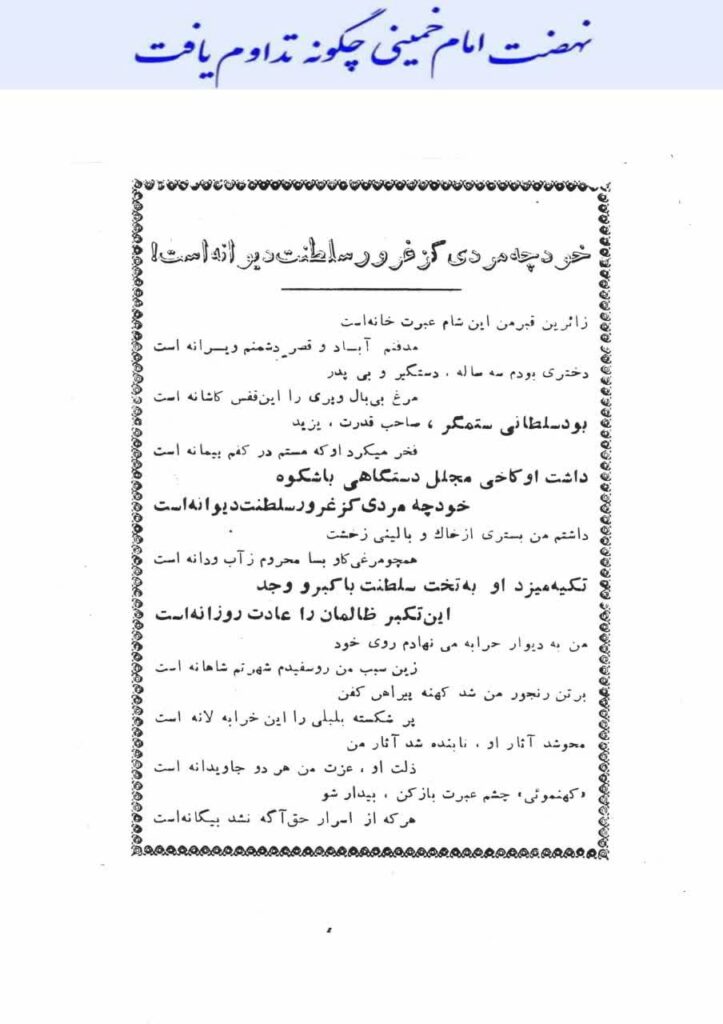 نهضت امام خمینی چگونه تداوم یافت
خود چه مردی کز غرور سلطنت دیوانه است!
زائرین قبر من این شام عبرت خانه است
مدفنم آباد و قصر دشمنم ویرانه است
دختری بودم سه ساله ، دستگیر و بی پدر
مرغ بی‌بال وپری را این قفس کاشانه است
بود سلطانی ستمگر ، صاحب قدرت ، یزید
فخر میکرد او که مستم در کفم پیمانه است
داشت او کاخی مجلل دستگاهی باشکوه
خود چه مردی کز غرور سلطنت دیوانه است
داشتم من بستری از خاك و بالینی زخشت
همچو مرغی کاو بسا محروم ز آب ودانه است
تکیه میزد او به تخت سلطنت با کبر و وجد
این تکبر ظالمان را عادت روزانه است
من به دیوار خرابه می نهادم روی خود
زین سبب من روسفیدم شهرتم شاهانه است
بر تن رنجور من شد کهنه پیراهن کفن
پر شکسته بلبلی را این خرابه لانه است
محو شد آثار او ، تابنده شد آثار من
ذلت او ، عزت من هر دو جاویدانه است
«کهنموئی» چشم عبرت باز کن ، بیدار شو
هر که از اسرار حق آگه نشد بیگانه است